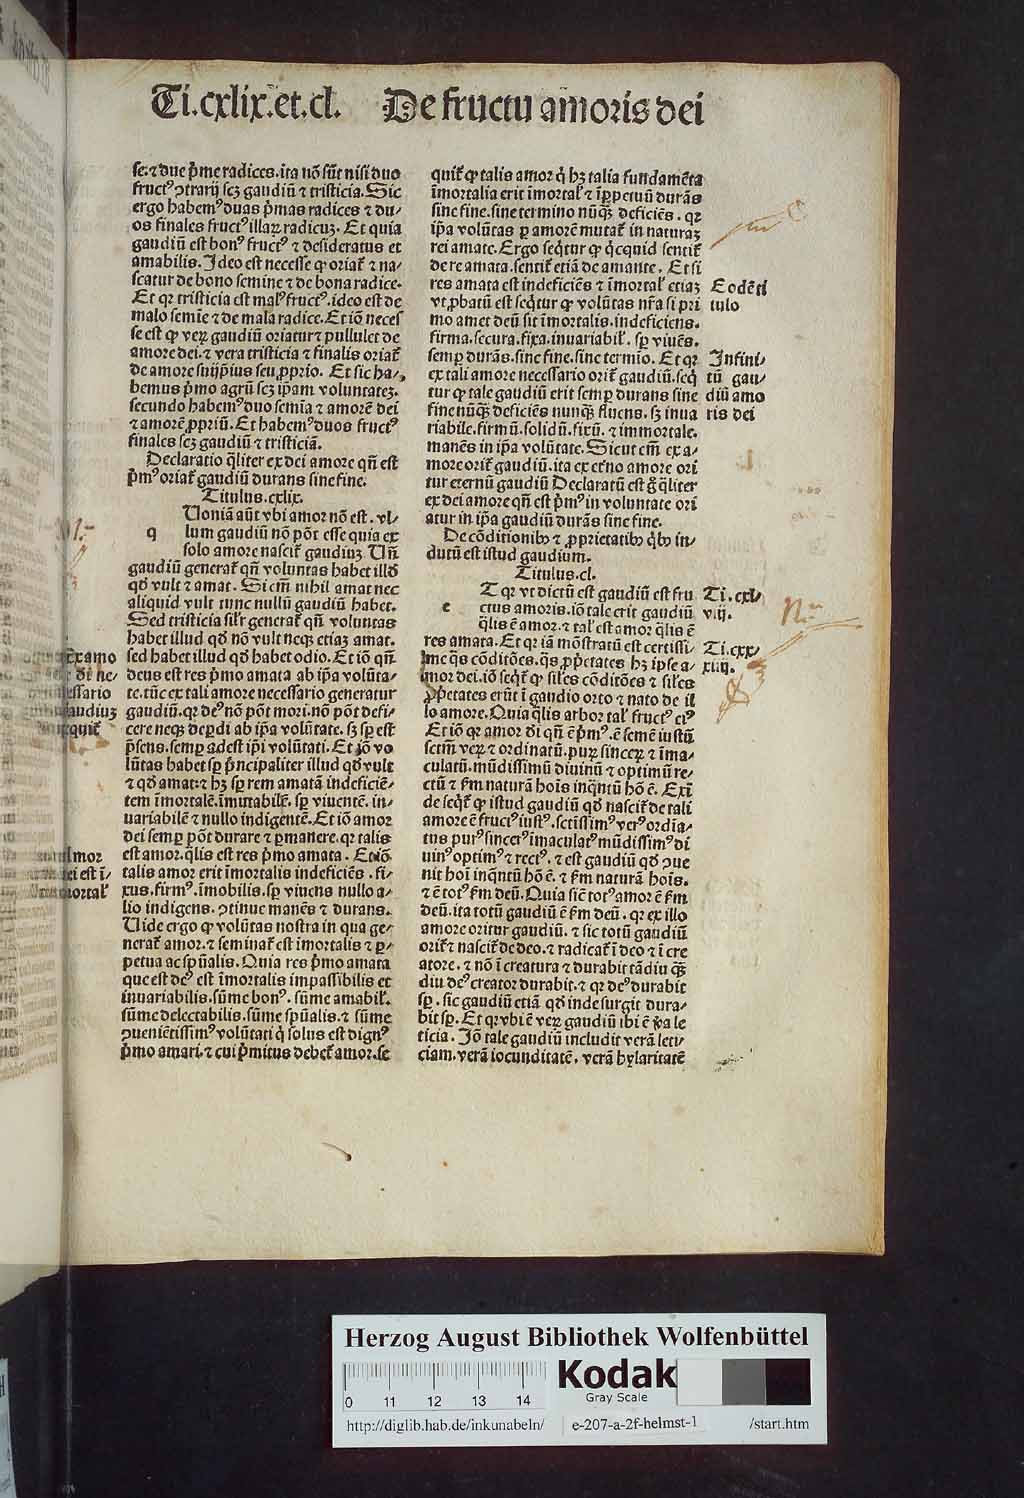 Ti.cxlix.et.cl. De fructu amoris dei
se.⁊ due p̃me radices.ita nõ sũt nisi duo
fructꝰ ↄtrarij scꝫ gaudiũ ⁊ tristicia. Sic
ergo habemꝰ duas p̃mas radices ⁊ du/
os finales fructꝰ illaꝝ radicuꝫ. Et quia
gaudiũ est bonꝰ fructꝰ ⁊ desideratus et
amabilis. Ideo est necesse ꝙ oriať ⁊ na/
scatur de bono semine ⁊ de bona radice.
Et qꝛ tristicia est malꝰ fructꝰ. ideo est de
malo semĩe ⁊ de mala radice. Et iõ neces
se est ꝙ veꝝ gaudiũ oriatur ⁊ pullulet de
amore dei. ⁊ vera tristicia ⁊ finalis oriať
de amore suijp̃ius seu ꝓprio. Et sic ha/
bemus p̃mo agrũ scꝫ ip̃am voluntateꝫ.
secundo habemꝰ duo semĩa ⁊ amorẽ dei
⁊ amorẽ ꝓpriũ. Et habemꝰ duos fructꝰ
finales scꝫ gaudiũ ⁊ tristiciã.
Declaratio q̃liter ex dei amore qñ est
p̃mꝰ oriať gaudiũ durans sine fine.
Titulus.cxlix.
Uoniã aũt vbi amor nõ est. vl/
q lum gaudiũ nõ põt esse quia ex
solo amore nasciť gaudiuꝫ. Uñ
gaudiũ generať qñ voluntas habet illđ
qđ vult ⁊ amat. Si em̃ nihil amat nec
aliquid vult tunc nullũ gaudiũ habet.
Sed tristicia sil'r generať qñ voluntas
habet illud qđ nõ vult neqꝫ etiaꝫ amat.
sed habet illud qđ habet odio. Et iõ qñ
deus est res p̃mo amata ab ip̃a volũta/
te.tũc ex tali amore necessario generatur
gaudiũ.qꝛ deꝰ nõ põt mori.nõ põt defi/
cere neqꝫ deꝑdi ab ip̃a volũtate. sꝫ sꝑ est
p̃sens.semꝑ adest ip̃i volũtati. Et iõ vo
lũtas habet sꝑ p̃ncipaliter illud qđ vult
⁊ qđ amat.⁊ hꝫ sꝑ rem amatã indeficiẽ/
tem ĩmortalẽ.ĩmutabilẽ. sꝑ viuentẽ. in/
uariabilẽ ⁊ nullo indigentẽ. Et iõ amor
dei semꝑ põt durare ⁊ ꝑmanere.qꝛ talis
est amor.q̃lis est res p̃mo amata. Et iõ
talis amor erit ĩmortalis indeficiẽs. fi/
xus.firmꝰ.ĩmobilis.sꝑ viuens nullo a/
lio indigens. ↄtinue manẽs ⁊ durans.
Uide ergo ꝙ volũtas nostra in qua ge/
nerať amor.⁊ seminať est ĩmortalis ⁊ ꝑ/
petua ac sp̃ualis. Quia res p̃mo amata
que est deꝰ est ĩmortalis impassibilis et
inuariabilis.sũme bonꝰ. sũme amabil'.
sũme delectabilis.sũme sp̃ualis. ⁊ sũme
ↄueniẽtissimꝰ volũtati q̃ solus est dignꝰ
p̃mo amari.⁊ cui p̃mitus debeť amor.se
quiť ꝙ talis amor q̃ hꝫ talia fundamẽta
ĩmortalia erit ĩmortal' ⁊ ĩꝑpetuũ durãs
sine fine.sine termino nũqꝫ deficiẽs. qꝛ
ip̃a volũtas ꝑ amorẽ mutať in naturaꝫ
rei amate. Ergo seq̃tur ꝙ q̃cquid sentiť
de re amata.sentiť etiã de amante. Et si
res amata est indeficiẽs ⁊ ĩmortal' etiaꝫ
vt ꝓbatũ est seq̃tur ꝙ volũtas nr̃a si pri
mo amet deũ sit ĩmortalis.indeficiens.
firma.secura.fixa.inuariabil'. sꝑ viuẽs.
semꝑ durãs.sine fine.sine termĩo. Et qꝛ
ex tali amore necessario oriť gaudiũ.seq̃
tur ꝙ tale gaudiũ erit semꝑ durans sine
fine nũqꝫ deficiẽs nunqꝫ fluens. sꝫ inua
riabile.firmũ.solidũ.fixũ. ⁊ immortale.
manẽs in ip̃a volũtate. Sicut em̃ ex a/
more oriť gaudiũ.ita ex et̃no amore ori
tur eternũ gaudiũ Declaratũ est g̃ q̃liter
ex dei amore qñ est p̃mꝰ in voluntate ori
atur in ip̃a gaudiũ durãs sine fine.
De cõditionibꝰ ⁊ ꝓprietatibꝰ q̃bꝰ in/
dutũ est istud gaudium.
Titulus.cl.
T qꝛ vt dictũ est gaudiũ est fru
e ctus amoris.iõ tale erit gaudiũ
q̃lis ẽ amor.⁊ tal' est amor q̃lis ẽ
res amata. Et qꝛ iã mõstratũ est certissi/
me q̃s cõditões.q̃s ꝓp̃etates hꝫ ipse a/
mor dei.iõ seq̃ť ꝙ siles cõditões ⁊ siles
ꝓp̃etates erũt ĩ gaudio orto ⁊ nato de il
lo amore. Quia q̃lis arbor tal' fructꝰ eiꝰ
Et iõ qꝛ amor di qñ ẽ p̃mꝰ.ẽ semẽ iustũ
sctm̃ veꝝ ⁊ ordinatũ.puꝝ sinceꝝ ⁊ ĩma/
culatũ.mũdissimũ diuinũ ⁊ optimũ re/
ctũ ⁊ fm̃ naturã hoĩs inq̃ntũ hõ ẽ. Exĩ
de seq̃ť ꝙ istud gaudiũ qđ nasciť de tali
amore ẽ fructꝰ iustꝰ.sctissimꝰ verꝰ ordĩa/
tus purꝰ sincerꝰ ĩmaculatꝰ mũdissimꝰ di
uinꝰ optimꝰ ⁊ rectꝰ. ⁊ est gaudiũ qđ ↄue
nit hoĩ inq̃ntũ hõ ẽ. ⁊ fm̃ naturã hoĩs.
⁊ ẽ totꝰ fm̃ deũ. Quia siẽ totꝰ amor ẽ fm̃
deũ.ita totũ gaudiũ ẽ fm̃ deũ. qꝛ ex illo
amore oritur gaudiũ. ⁊ sic totũ gaudiũ
oriť ⁊ nasciť de deo.⁊ radicať ĩ deo ⁊ ĩ cre
atore. ⁊ nõ ĩ creatura ⁊ durabit tãdiu qꝫ
diu deꝰ creator durabit.⁊ qꝛ deꝰ durabit
sꝑ. sic gaudiũ etiã qđ inde surgit dura/
bit sꝑ. Et qꝛ vbi ẽ veꝝ gaudiũ ibi ẽ ṽa le
ticia. Iõ tale gaudiũ includit verã leti/
ciam.verã iocunditatẽ. verã hylaritatẽ
Eodẽ ti
tulo
Infini/
tũ gau/
diũ amo
ris dei
Ti.cxl/
vij.
Ti.cxx/
xiiij.
Herzog August Bibliothek Wolfenbüttel
0 11 12 13 14
Kodak
Gray Scale
http://diglib.hab.de/inkunabeln/ e-207-a-2f-helmst-1 /start.htm